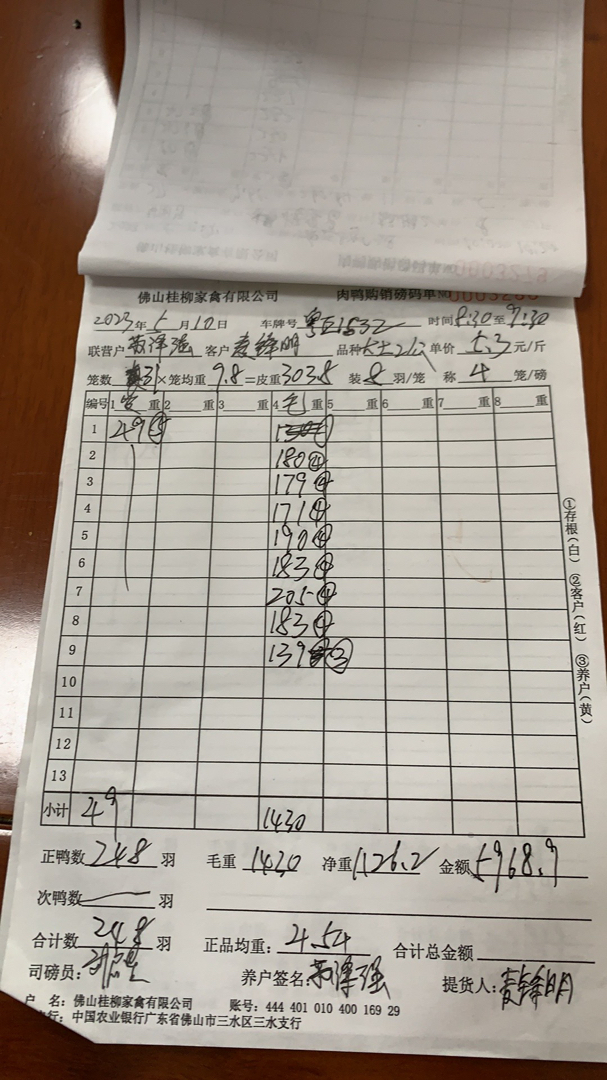 佛山桂柳家禽有限公司 肉鸭购销磅码单 №
2023年5月10日 车牌号 时间8:30至9:30
联营户 客户 品种 单价 5.3元/斤
笼数 31×笼均重9.8=皮重303.8 装8羽/笼 称4笼/磅
编号 1空重 2 重 3 重 4毛重 5 重 6 重 7 重 8 重
1 49⑤
2 180④
3 179④
4 171④
5 190④
6 183④
7 205④
8 183④
9 139③
10
11
12
13
小计 49 1430
正鸭数248羽 毛重1430 净重1126.2 金额5968.9
次鸭数 羽
合计数248羽 正品均重:4.54 合计总金额
司磅员: 养户签名: 提货人:
户 名: 佛山桂柳家禽有限公司 账号: 444 401 010 400 169 29
行: 中国农业银行广东省佛山市三水区三水支行
①存根(白) ②客户(红) ③养户(黄)